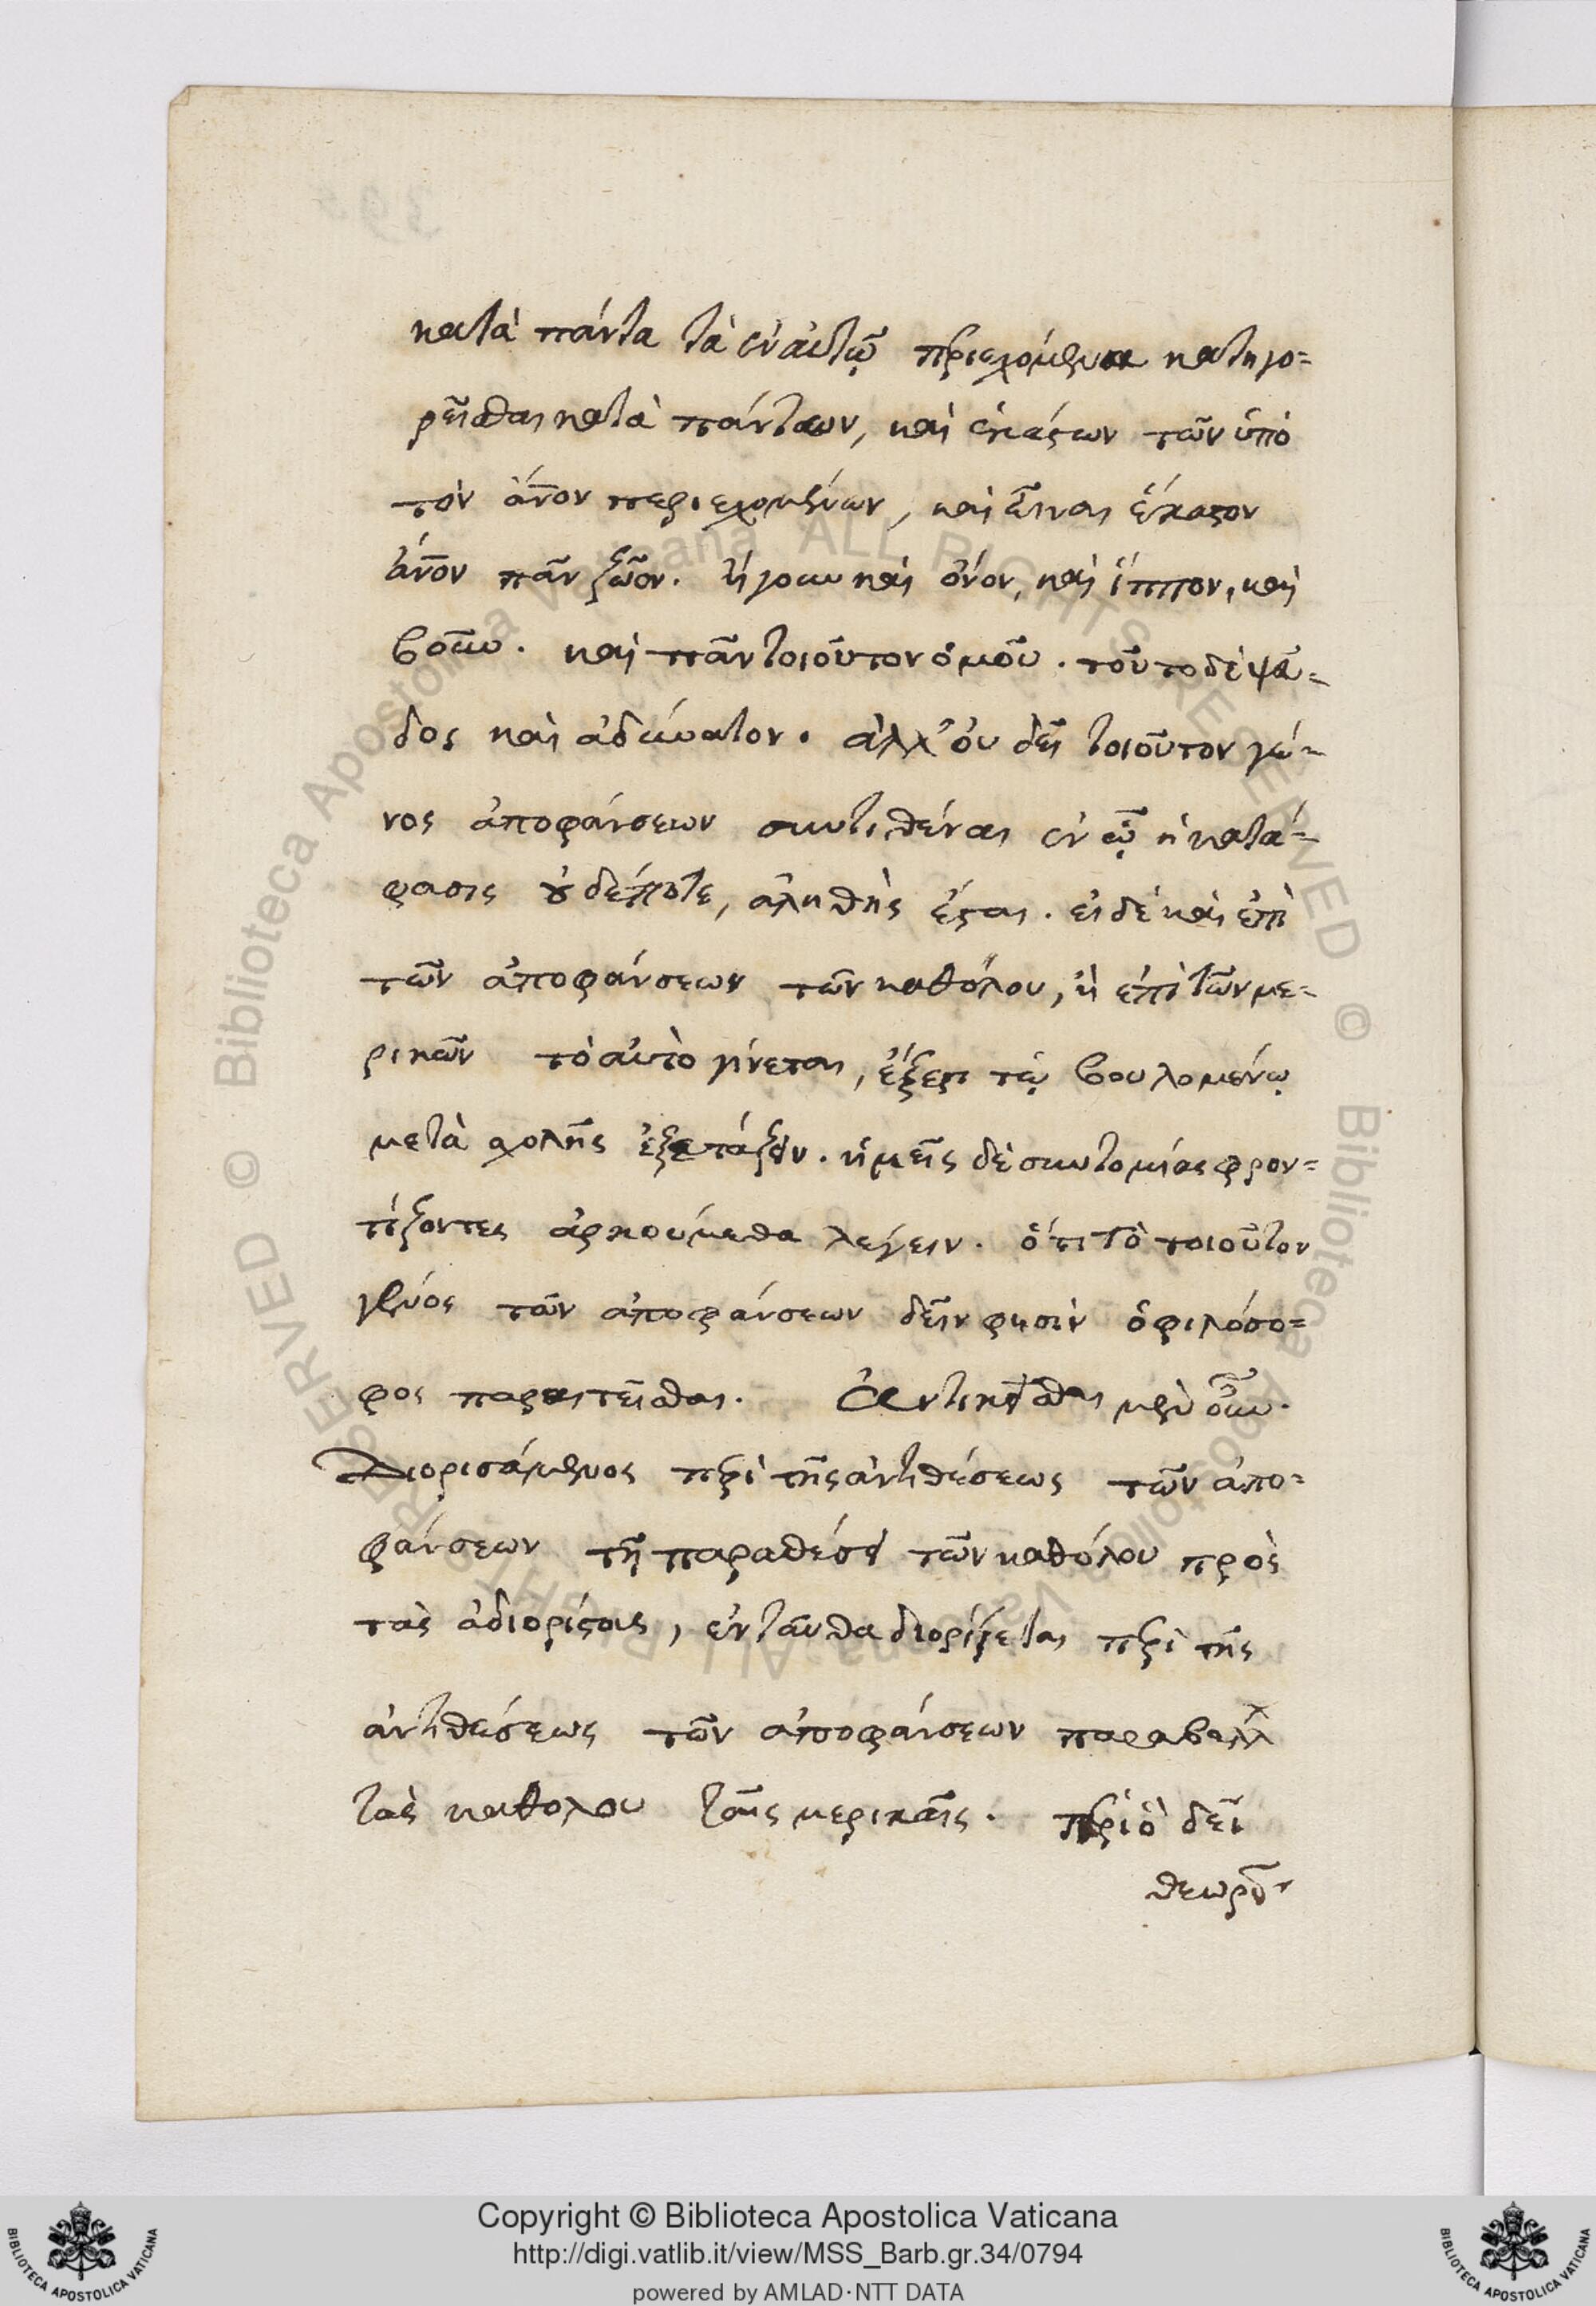 κατὰ πάντα τὰ ἐν αὐτῷ περιεχόμενα κατηγο=
ρεῖσθαι κατὰ πάντων, καὶ ἑκάστων τῶν ὑπὸ
τὸν ἄνον περιεχομένων, καὶ εἶναι ἕκαστον
ἄνον πᾶν ζῶον. ἤγουν καὶ ὄνον, καὶ ἵππον, καὶ
βοῦν. καὶ πᾶν τοιοῦτον ὁμοῦ. τοῦτο δὲ ψεῦ=
δος καὶ ἀδύνατον. ἀλλ' οὐ δεῖ τοιοῦτον γέ=
νος ἀποφάνσεων συντιθέναι ἐν ᾧ ἡ κατά=
φασις οὐδέποτε, ἀληθὴς ἔσται. εἰ δὲ καὶ ἐπὶ
τῶν ἀποφάνσεων τῶν καθόλου, ἢ ἐπὶ τῶν με=
ρικῶν τὸ αὐτὸ γίνεται, ἔξεστι τῷ βουλομένῳ
μετὰ σχολῆς ἐξετάζειν. ἡμεῖς δὲ συντομίας φρον=
τίζοντες ἀρκούμεθα λέγειν. ὅτι τὸ τοιοῦτον
γένος τῶν ἀποφάνσεων δεῖν φησὶν ὁ φιλόσο=
φος παραιτεῖσθαι. Ἀντικεῖσθαι μὲν οὖν.
Διορισάμενος περὶ τῆς ἀντιθέσεως τῶν ἀπο=
φάνσεων τῇ παραθέσει τῶν καθόλου πρὸς
τὰς ἀδιορίστους, ἐνταῦθα διορίζεται περὶ τῆς
ἀντιθέσεως τῶν ἀποφάνσεων παραβαλλ
τὰς καθολου ταῖς μερικαῖς. περὶ ὃ δεῖ
θεωρῆ
Copyright © Biblioteca Apostolica Vaticana
http://digi.vatlib.it/view/MSS_Barb.gr.34/0794
powered by AMLAD·NTT DATA